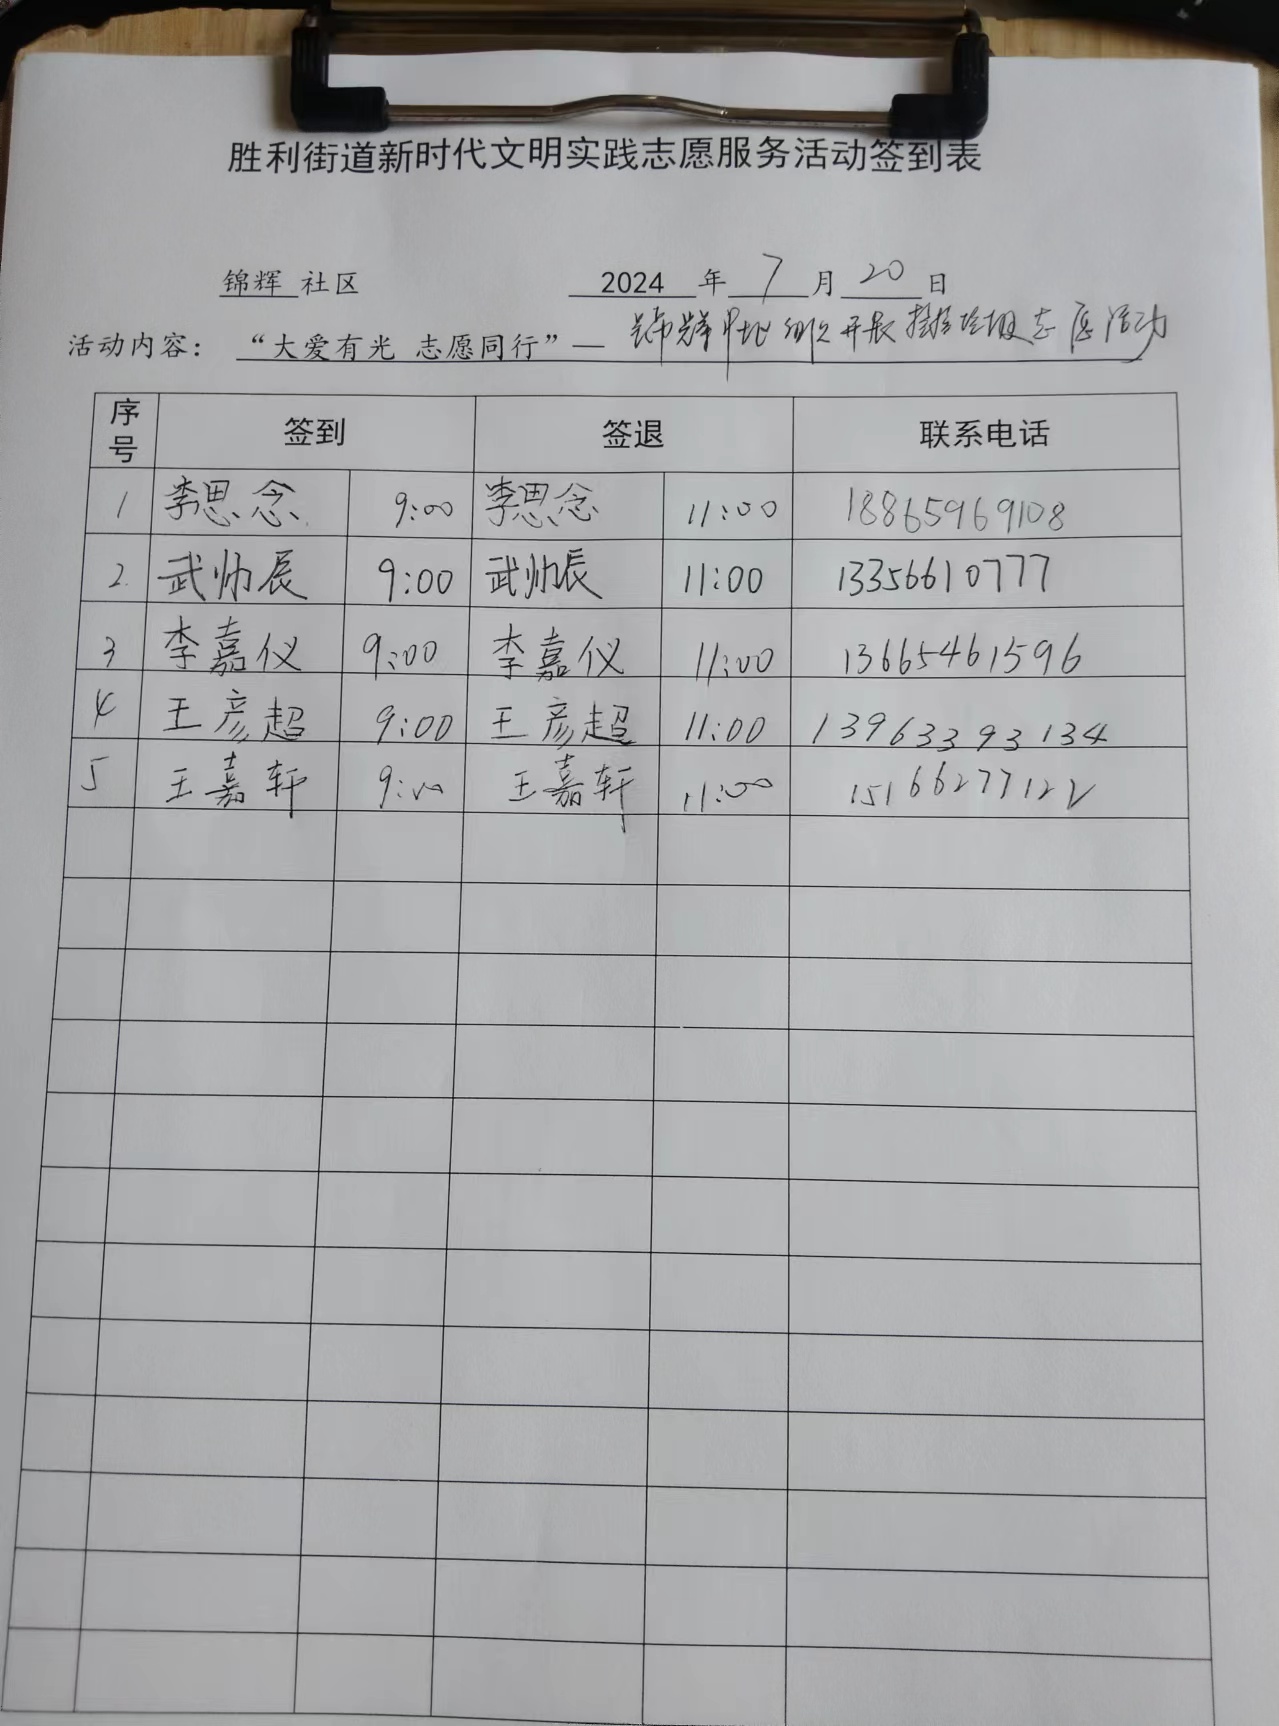 胜利街道新时代文明实践志愿服务活动签到表
锦辉 社区 2024 年 7 月 20 日
活动内容： “大爱有光 志愿同行”— 开展 志愿活动
序号 签到 签退 联系电话
1 李思念 9:00 李思念 11:00 18865969108
2. 武帅辰 9:00 武帅辰 11:00 13356610777
3 李嘉仪 9:00 李嘉仪 11:00 13665461596
4 王彦超 9:00 王彦超 11:00 13963393134
5 王嘉轩 9:00 王嘉轩 11:00 15166277122